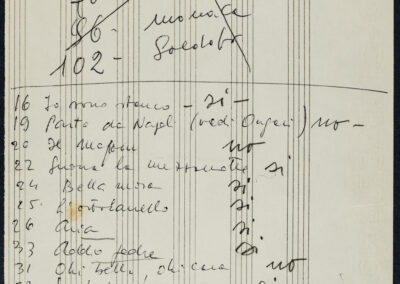 96 - monaca
102 - Soldato
16 Io sono stanco - si -
19 Parto da Napoli (vedi Ongari) no -
20 Il no
22 Suona la mezzanotte si
24 Bella mora si
25. L'ortolanello si
26 Aria si
33 Addio padre si
31 Ohi bella, ohi cara no